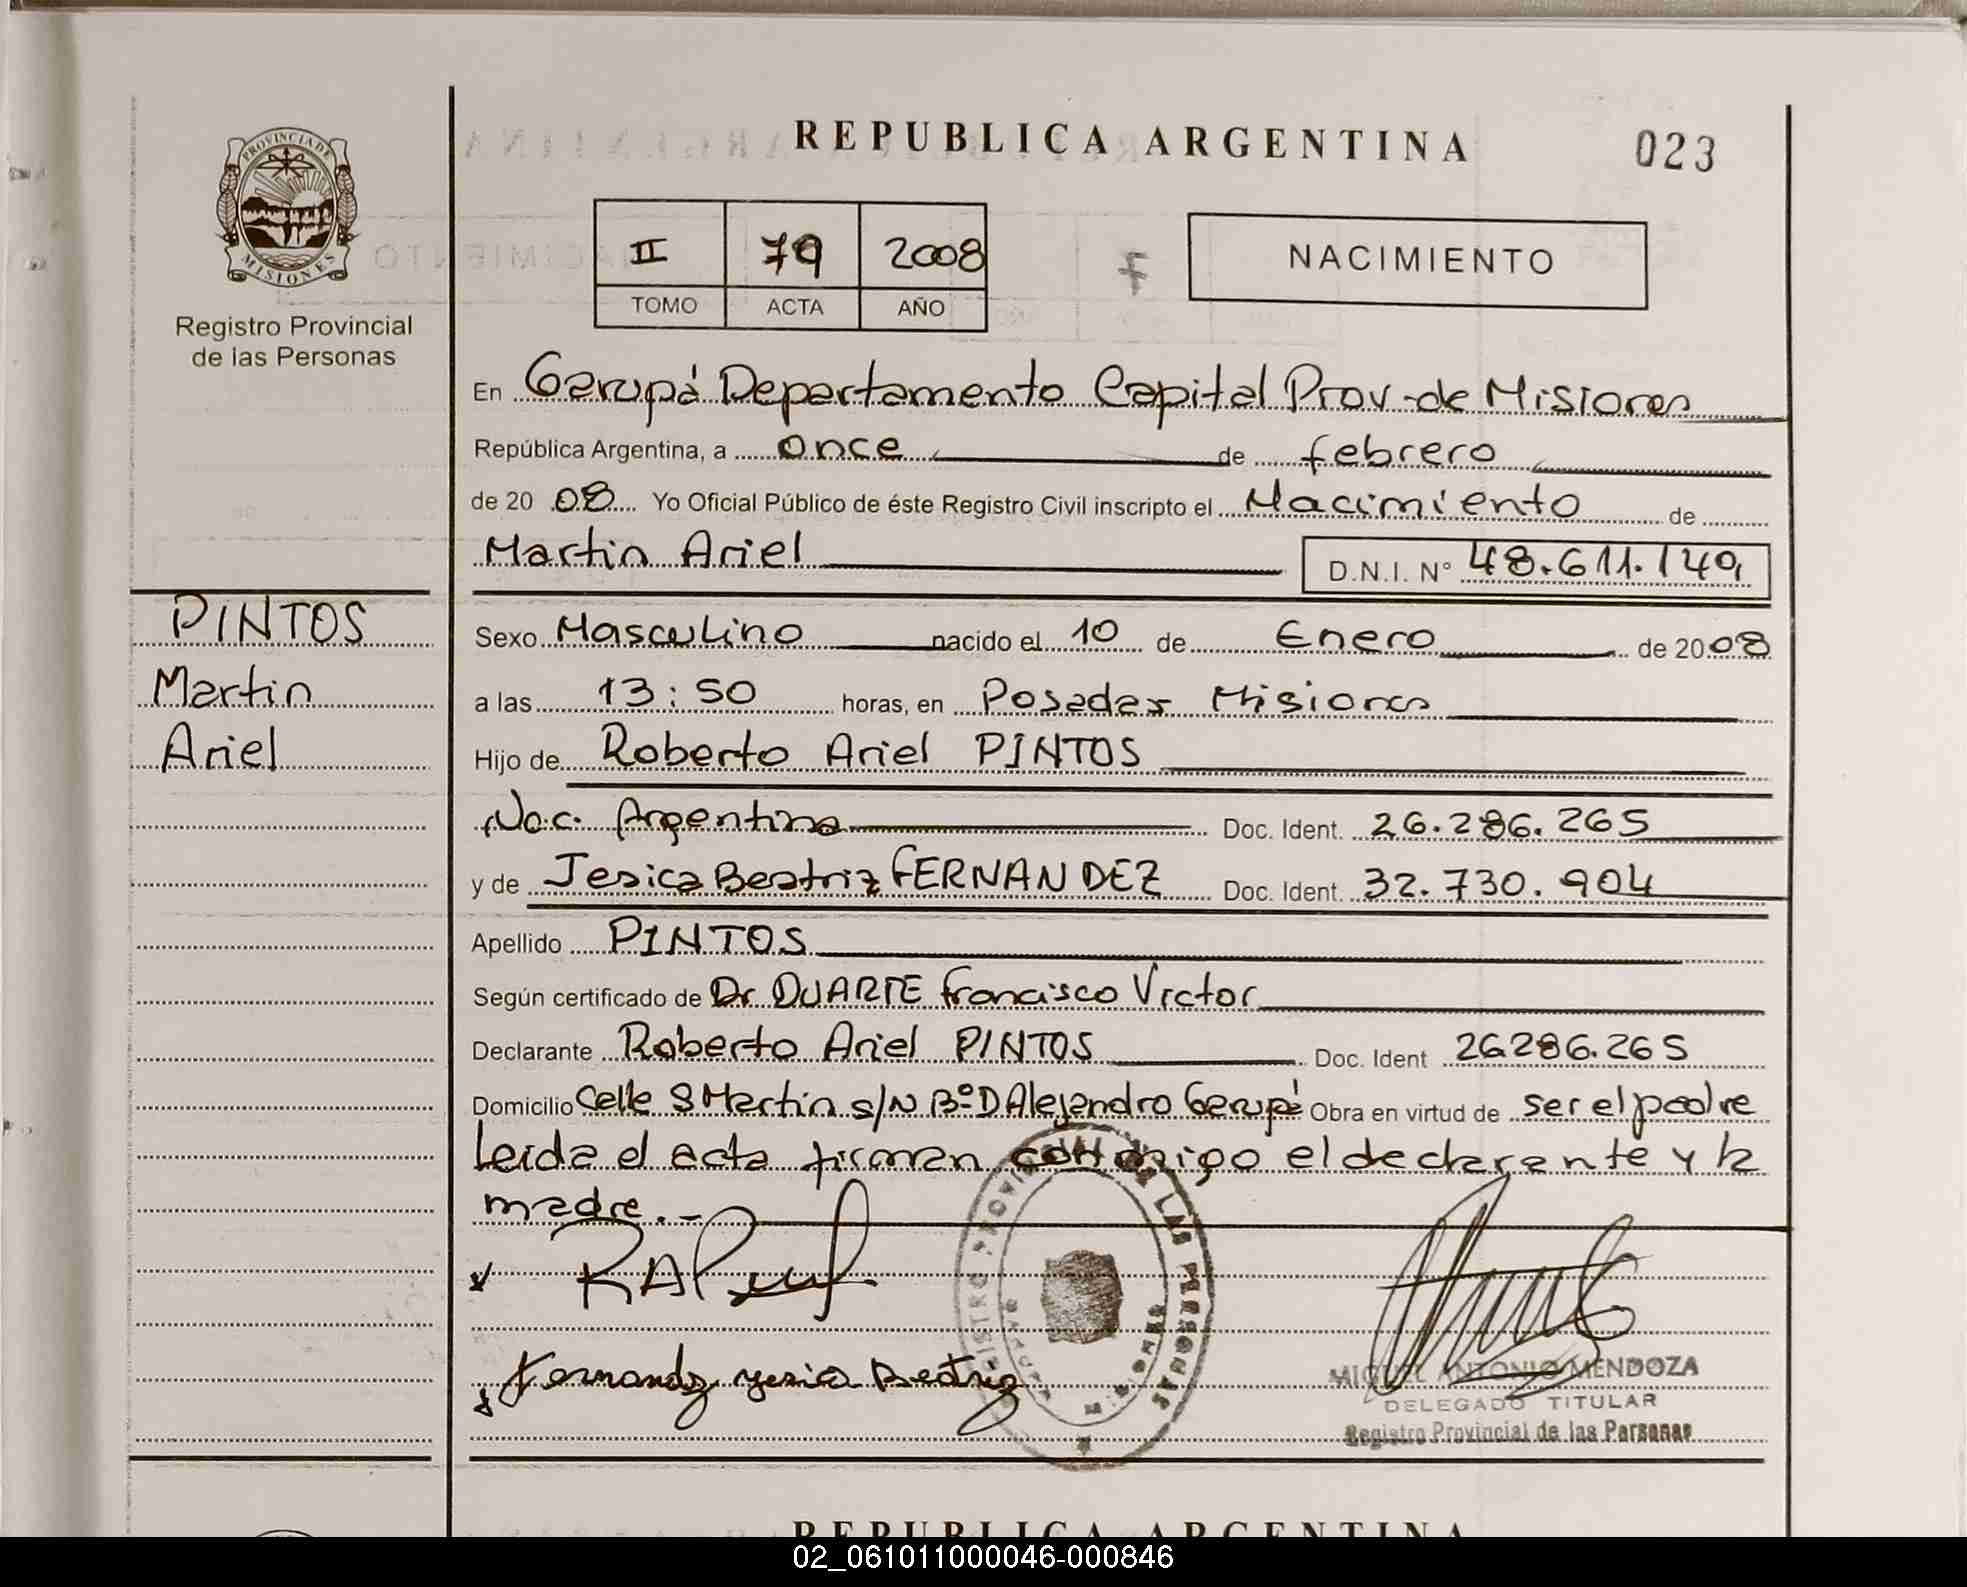 REPUBLICA ARGENTINA
023
PROVINCIA DE
MISIONES
Registro Provincial
de las Personas
II 79 2008
TOMO ACTA AÑO
NACIMIENTO
En Garupá Departamento Capital Prov. de Misiones
República Argentina, a once de febrero
de 20 08 Yo Oficial Público de éste Registro Civil inscripto el Nacimiento de
Martin Ariel D.N.I. N° 48.611.149
PINTOS
Martin
Ariel
Sexo Masculino nacido el 10 de Enero de 2008
a las 13:50 horas, en Posadas Misiones
Hijo de Roberto Ariel PINTOS
Nac. Argentina Doc. Ident. 26.286.265
y de Jesica Beatriz FERNANDEZ Doc. Ident. 32.730.904
Apellido PINTOS
Según certificado de Dr DUARTE Francisco Victor
Declarante Roberto Ariel PINTOS Doc. Ident 26286.265
Domicilio Calle S Martin s/N Bº D Alejandro Garupá Obra en virtud de ser el padre
Leida el acta firman conmigo el declarante y la
madre.-
Fernandez Yesica Beatriz
MIGUEL ANTONIO MENDOZA
DELEGADO TITULAR
Registro Provincial de las Personas
REPUBLICA ARGENTINA
02_061011000046-000846